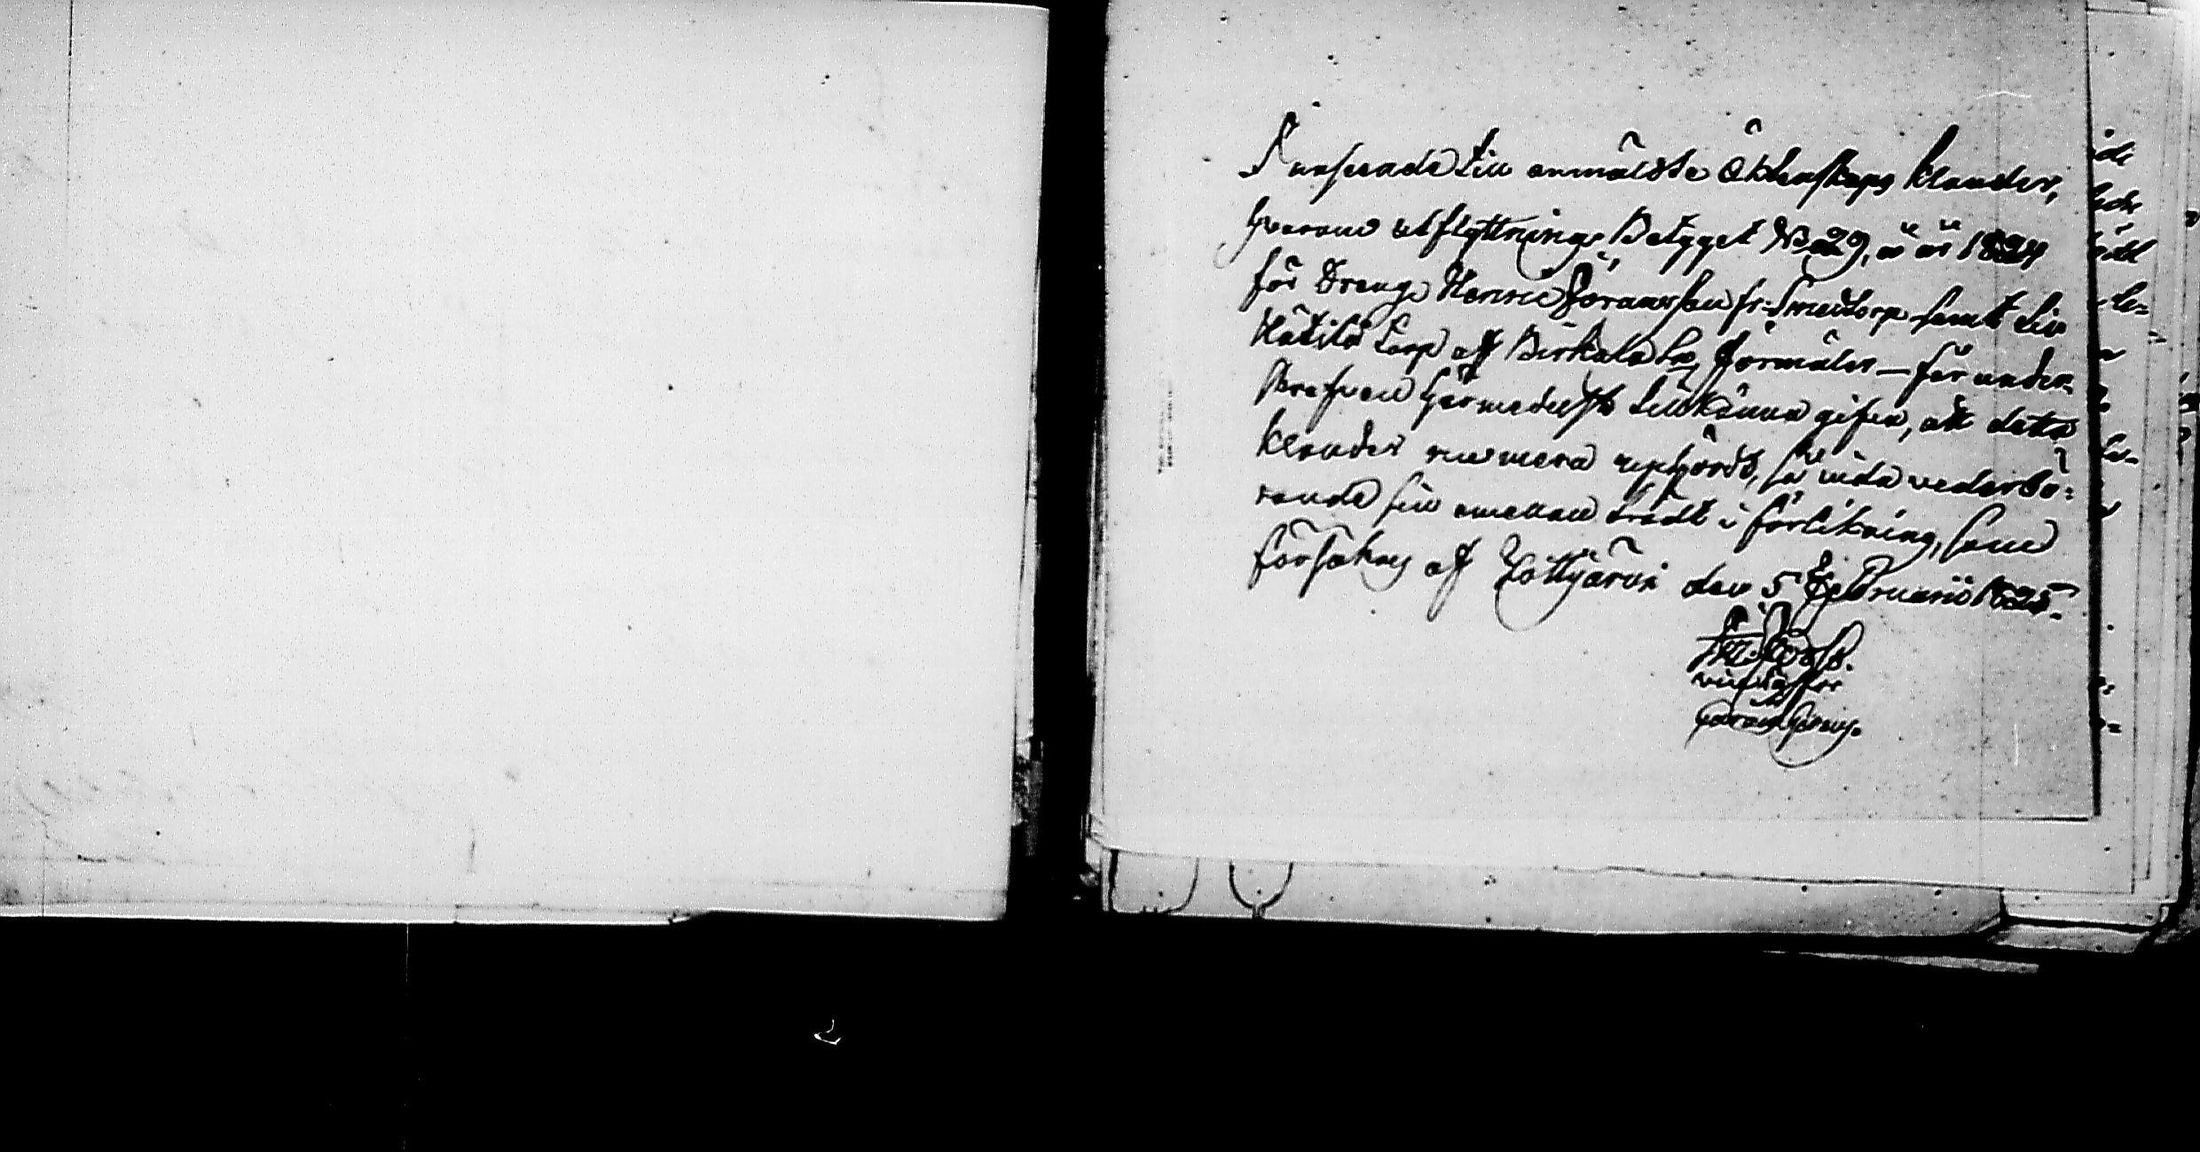 I anseende till anmäldte Äktenskaps klander,
hvarom utflyttnings Betyget No 29, å år 1824
för Dreng. Henric Göransson fr. Smedtorp samt till
Hätilä Torp aff Birkala Sn, förmäler — får under-
skrefven härmedelst tillkänna gifva, att detta
klander nu mera upphördt, så vida vederbö-
rande sin emellan trädt i förlikning, som
försäkras aff Tottijärvi den 5 Februarii 1825.